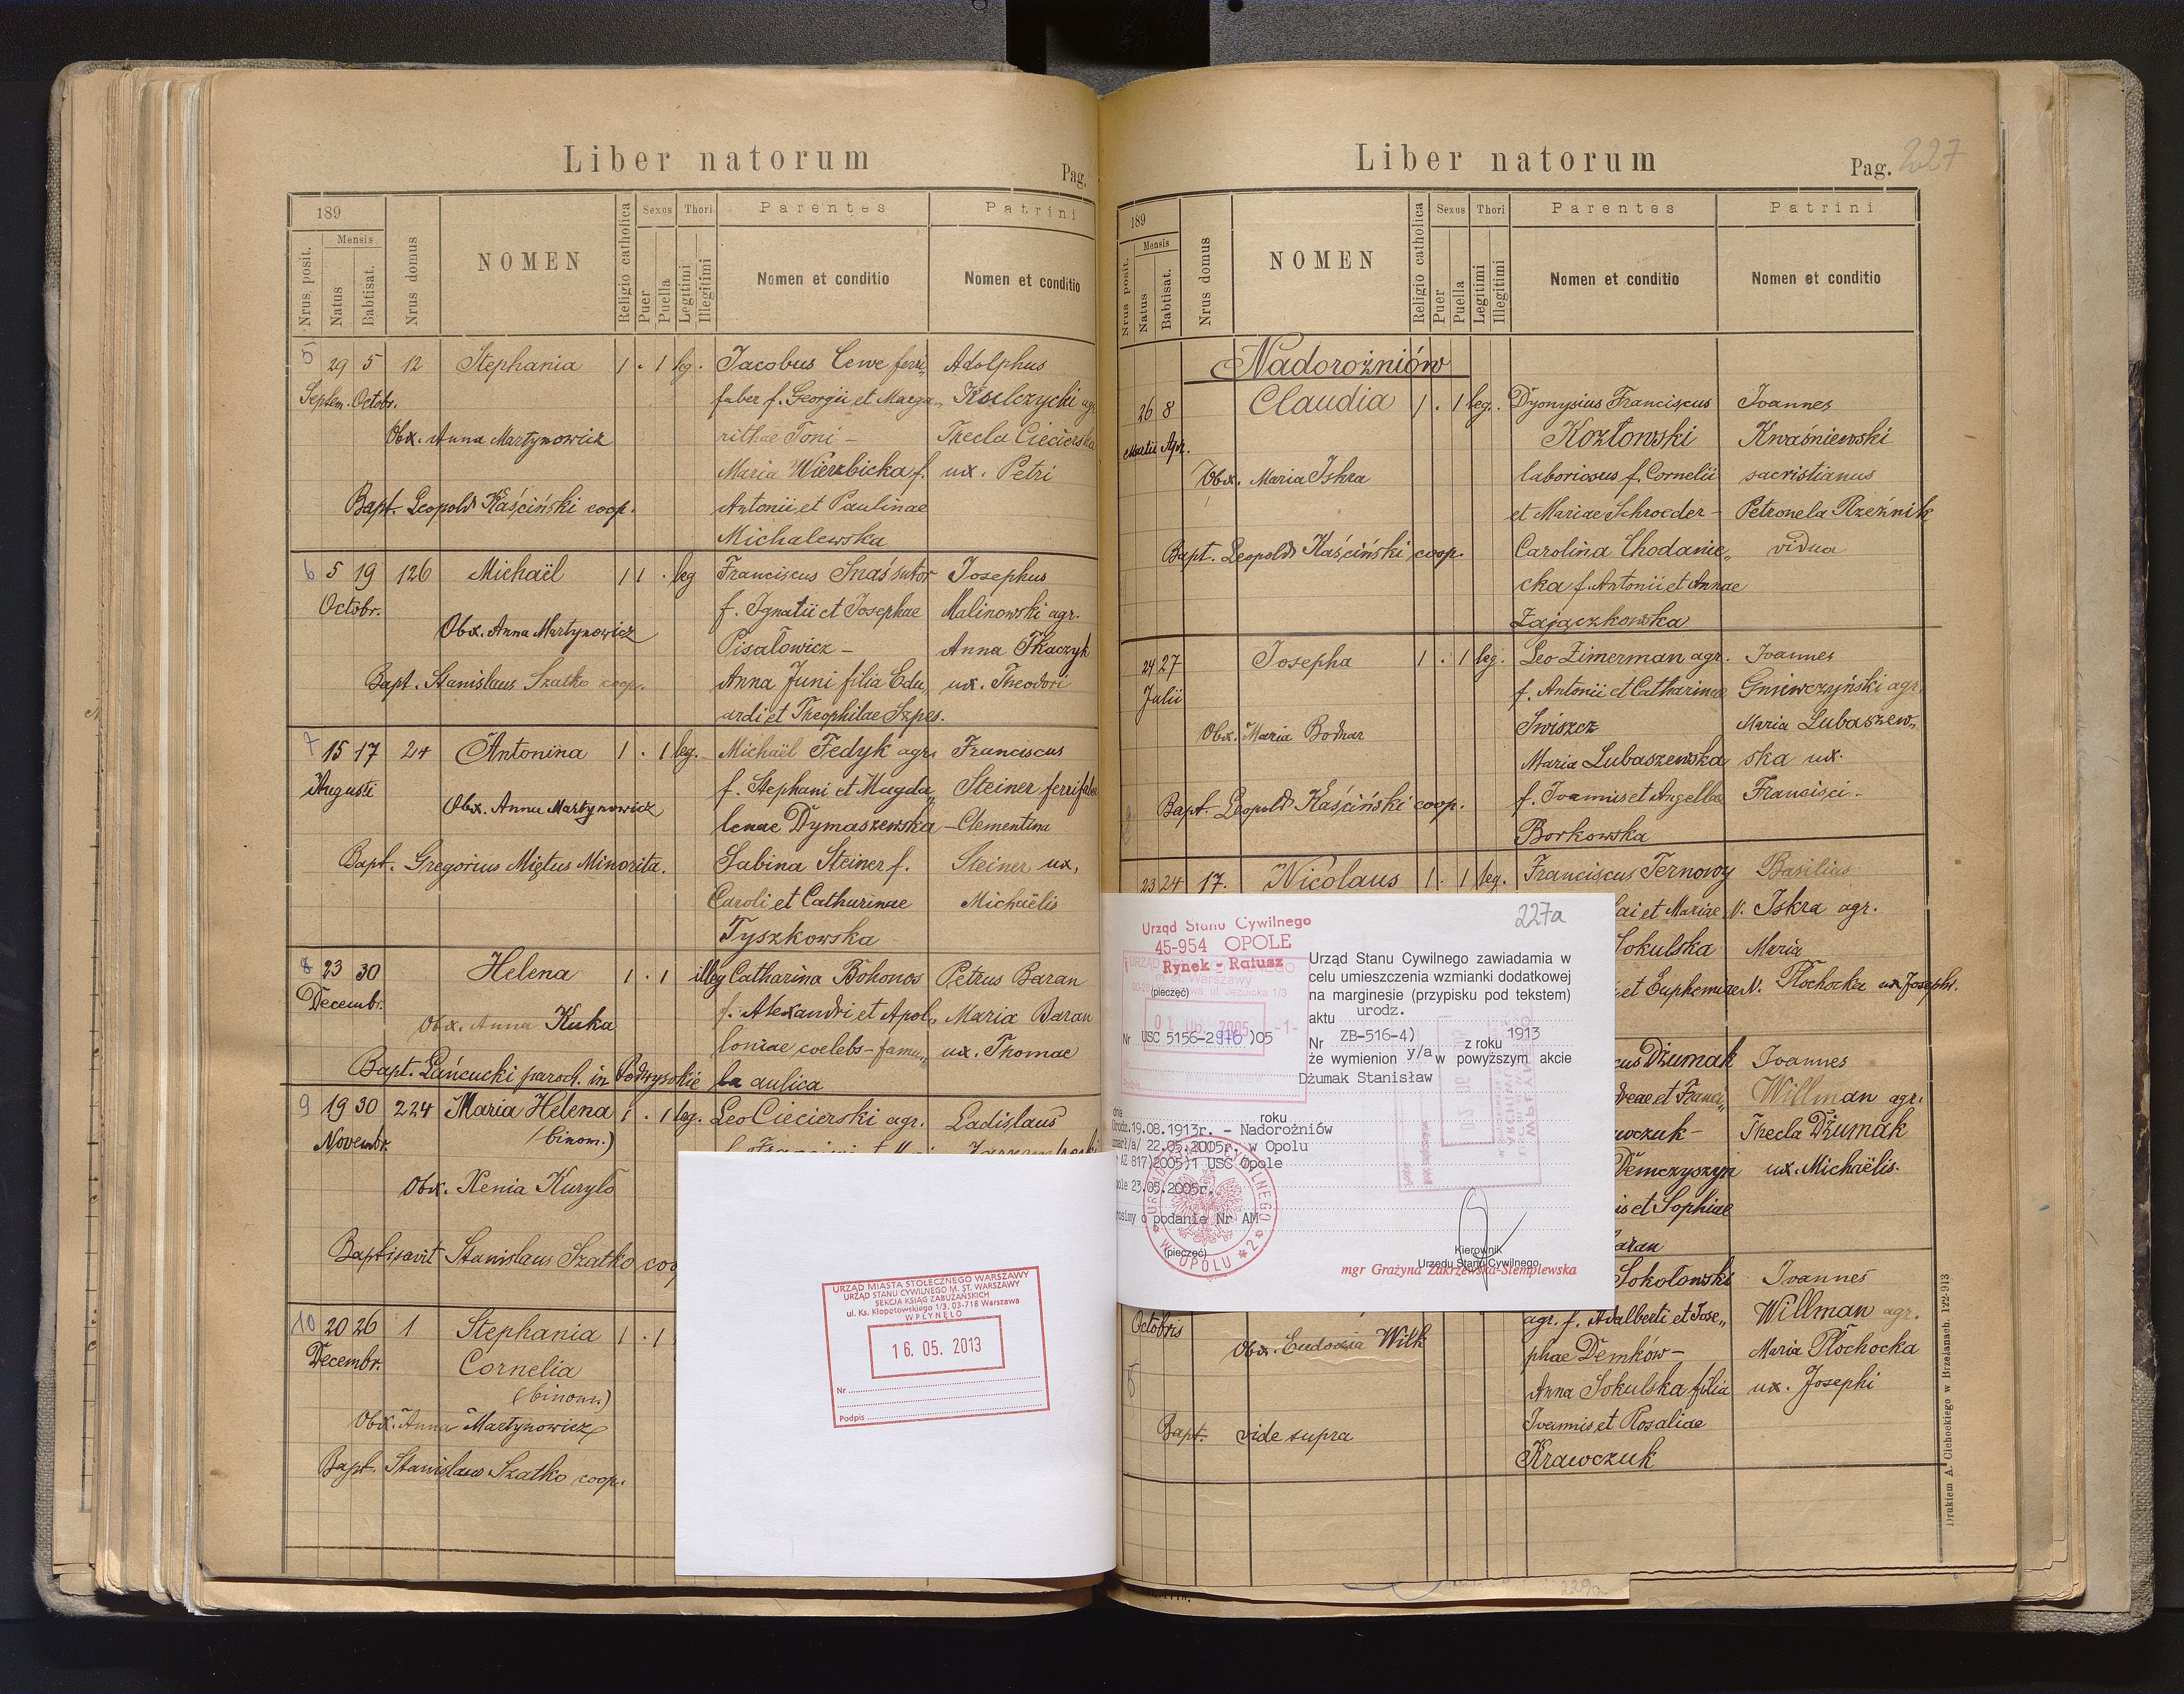 Liber natorum
Pag.
189
Mensis
Nrus. posit.
Natus
Babtisat.
Nrus domus
NOMEN
Religio catholica
Sexus
Puer
Puella
Thori
Legitimi
Illegitimi
Parentes
Nomen et conditio
Patrini
Nomen et conditio
5 29 5 12 Stephania 1 . 1 leg. Jacobus Cewe ferri„ Adolphus
Septem. Octobr. faber f. Georgii et Marga„ Kulczycki agr
Obx. Anna Martynowicz rithae Toni – Thecla Ciecierska
Maria Wierzbicka f. ux. Petri
Bapt. Leopold Kaściński coop. Antonii et Paulinae
Michalewska
6 5 19 126 Michaël 1 1 . leg Franciscus Snaś sutor Josephus
Octobr. f. Ignatii et Josephae Malinowski agr.
Obx. Anna Martynowicz Pisalowicz – Anna Tkaczyk
Bapt. Stanislaus Szatko coop. Anna Juni filia Edu„ ux. Theodori
ardi et Theophilae Szpes.
7 15 17 24 Antonina 1 . 1 leg. Michaël Fedyk agr. Franciscus
Augusti f. Stephani et Magda„ Steiner ferrifaber
Obx. Anna Martynowicz lenae Dymaszewska – Clementina
Bapt. Gregorius Miętus Minorita. Sabina Steiner f. Steiner ux.
Caroli et Catharinae Michaëlis
Tyszkowska
8 23 30 Helena 1 . 1 illeg Catharina Bohonos Petrus Baran
Decembr. f. Alexandri et Apol„ Maria Baran
Obx. Anna Kuka loniae coelebs – famu„ ux. Thomae
Bapt. Łańcucki paroch. in Podwysokie la aulica
9 19 30 224 Maria Helena 1 . 1 leg. Leo Ciecierski agr. Ladislaus
Novembr. (binom.)
Obx. Xenia Kuryło
Baptisavit Stanislaus Szatko coop
10 20 26 1 Stephania 1 . 1
Decembr. Cornelia
(binom.)
Obx. Anna Martynowicz
Bapt. Stanislaus Szatko coop.
URZĄD MIASTA STOŁECZNEGO WARSZAWY
URZĄD STANU CYWILNEGO M. ST. WARSZAWY
SEKCJA KSIĄG ZABUŻAŃSKICH
ul. Ks. Kłopotowskiego 1/3, 03-718 Warszawa
WPŁYNĘŁO
16. 05. 2013
Nr
Podpis
Liber natorum
Pag. 227
189
Mensis
Nrus posit.
Natus
Babtisat.
Nrus domus
NOMEN
Religio catholica
Sexus
Puer
Puella
Thori
Legitimi
Illegitimi
Parentes
Nomen et conditio
Patrini
Nomen et conditio
Nadorożniów
26 8 Claudia 1 . 1 leg. Dyonysius Franciscus Joannes
Martii Apr. Kozłowski Kwaśniewski
Obx. Maria Iskra laboriosus f. Cornelii sacristianus
et Mariae Schroeder – Petronela Rzeźnik
Bapt. Leopold Kaściński coop. Carolina Chodanie„ vidua
cka f. Antonii et Annae
Zajączkowska
24 27 Josepha 1 . 1 leg. Leo Zimerman agr. Joannes
Julii f. Antonii et Catharinae Gniewczyński agr.
Obx. Maria Bodnar Swiszcz Maria Lubaszew„
Maria Lubaszewska ska ux.
Bapt. Leopold Kaściński coop. f. Joannis et Angellae Francisci –
Borkowska
23 24 17. Nicolaus 1 . 1 leg. Franciscus Ternowy Basilius
ai et Mariae N. Iskra agr.
Sokulska Maria
et Euphemiae N. Płochocka ux Josephi.
cus Dżumak Joannes
dreae et Franci„ Willman agr.
wczuk – Thecla Dżumak
Demczyszyn ux. Michaëlis.
is et Sophiae
aran
Sokołowski Joannes
Octobris agr. f. Adalberti et Jose„ Willman agr.
Obx. Eudoxia Wilk phae Demków – Maria Płochocka
Anna Sokulska filia ux. Josephi
Bapt. vide supra Joannis et Rosaliae
Krawczuk
227a
Urząd Stanu Cywilnego
45-954 OPOLE
Rynek - Ratusz
(pieczęć)
Nr USC 5156-2976)05
Urząd Stanu Cywilnego zawiadamia w
celu umieszczenia wzmianki dodatkowej
na marginesie (przypisku pod tekstem)
aktu urodz.
Nr ZB-516-4) z roku 1913
że wymienion y/a w powyższym akcie
Dżumak Stanisław
dnia roku
urodz.19.08.1913r. - Nadorożniów
zmarł/a/ 22.05.2005r. w Opolu
AZ 817)2005)1 USC Opole
ole 23.05.2005r.
rosimy o podanie Nr AM
(pieczęć)
Kierownik
Urzędu Stanu Cywilnego
mgr Grażyna Zakrzewska-Slemplewska
Drukiem A. Cichockiego w Brzeżanach. 122-913
229a